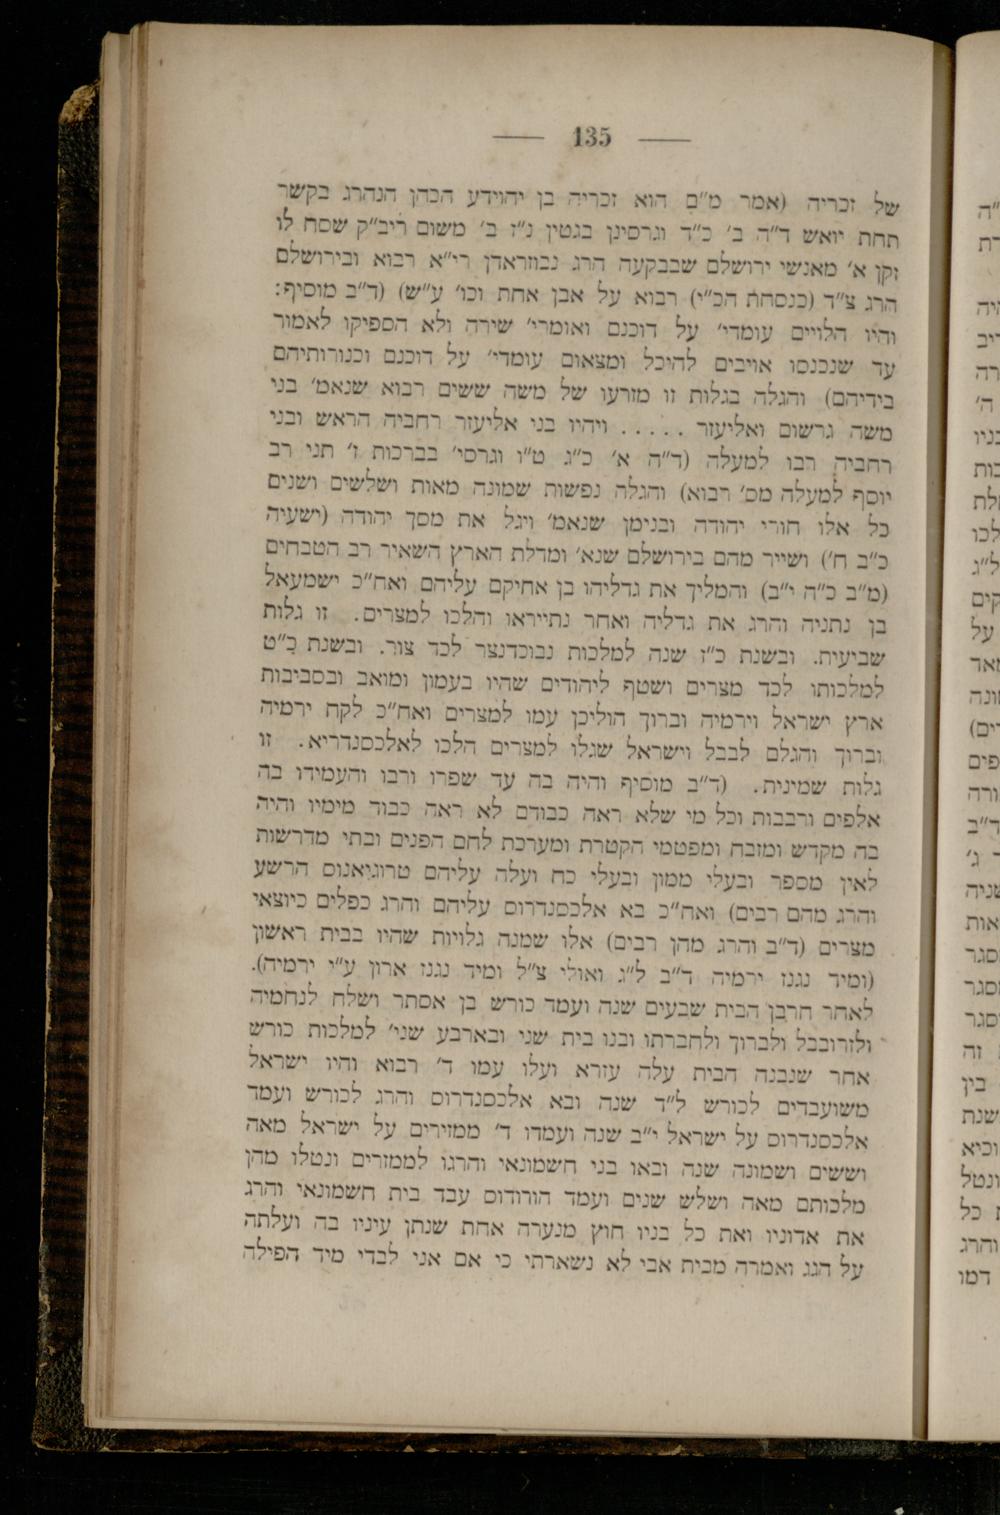 — 135 —
של זכריה (אמר מ״ם הוא זכריה בן יהוידע הכהן הנהרג בקשר
תחת יואש ד״ה ב׳ כ״ד וגרסינן בגטין נ״ז ב׳ משום ריב״ק שסח לו
זקן א׳ מאנשי ירושלם שבבקעה הרג נבוזראדן רי״א רבוא ובירושלם
הרג צ״ד (כנסחת הכ״י) רבוא על אבן אחת וכו׳ ע״ש) (ד״ב מוסיף:
והיו הלויים עומדי׳ על דוכנם ואומרי׳ שירה ולא הספיקו לאמור
עד שנכנסו אויבים להיכל ומצאום עומדי׳ על דוכנם וכנורותיהם
בידיהם) והגלה בגלות זו מזרעו של משה ששים רבוא שנאמ׳ בני
משה גרשום ואליעזר ..... ויהיו בני אליעזר רחביה הראש ובני
רחביה רבו למעלה (ד״ה א׳ כ״ג ט״ו וגרסי׳ בברכות ז׳ תני רב
יוסף למעלה מס׳ רבוא) והגלה נפשות שמונה מאות ושלשים ושנים
כל אלו חורי יהודה ובנימן שנאמ׳ ויגל את מסך יהודה (ישעיה
כ״ב ח׳) ושייר מהם בירושלם שנא׳ ומדלת הארץ השאיר רב הטבחים
(מ״ב כ״ה י״ב) והמליך את גדליהו בן אחיקם עליהם ואח״כ ישמעאל
בן נתניה והרג את גדליה ואחר נתייראו והלכו למצרים. זו גלות
שביעית. ובשנת כ״ז שנה למלכות נבוכדנצר לכד צור. ובשנת כ״ט
למלכותו לכד מצרים ושטף ליהודים שהיו בעמון ומואב ובסביבות
ארץ ישראל וירמיה וברוך הוליכן עמו למצרים ואח״כ לקח ירמיה
וברוך והגלם לבבל וישראל שגלו למצרים הלכו לאלכסנדריא. זו
גלות שמינית. (ד״ב מוסיף והיה בה עד שפרו ורבו והעמידו בה
אלפים ורבבות וכל מי שלא ראה כבודם לא ראה כבוד מימיו והיה
בה מקדש ומזבח ומפטמי הקטרת ומערכת לחם הפנים ובתי מדרשות
לאין מספר ובעלי ממון ובעלי כח ועלה עליהם טרוגיאנוס הרשע
והרג מהם רבים) ואח״כ בא אלכסנדרוס עליהם והרג כפלים כיוצאי
מצרים (ד״ב והרג מהן רבים) אלו שמנה גלויות שהיו בבית ראשון
(ומיד נגנז ירמיה ד״ב ל״ג ואולי צ״ל ומיד נגנז ארון ע״י ירמיה).
לאחר חרבן הבית שבעים שנה ועמד כורש בן אסתר ושלח לנחמיה
ולזרובבל ולברוך ולחברתו ובנו בית שני ובארבע שני׳ למלכות כורש
אחר שנבנה הבית עלה עזרא ועלו עמו ד׳ רבוא והיו ישראל
משועבדים לכורש ל״ד שנה ובא אלכסנדרוס והרג לכורש ועמד
אלכסנדרוס על ישראל י״ב שנה ועמדו ד׳ ממזירים על ישראל מאה
וששים ושמונה שנה ובאו בני חשמונאי והרגו לממזרים ונטלו מהן
מלכותם מאה ושלש שנים ועמד הורודוס עבד בית חשמונאי והרג
את אדוניו ואת כל בניו חוץ מנערה אחת שנתן עיניו בה ועלתה
על הגג ואמרה מבית אבי לא נשארתי כי אם אני לבדי מיד הפילה